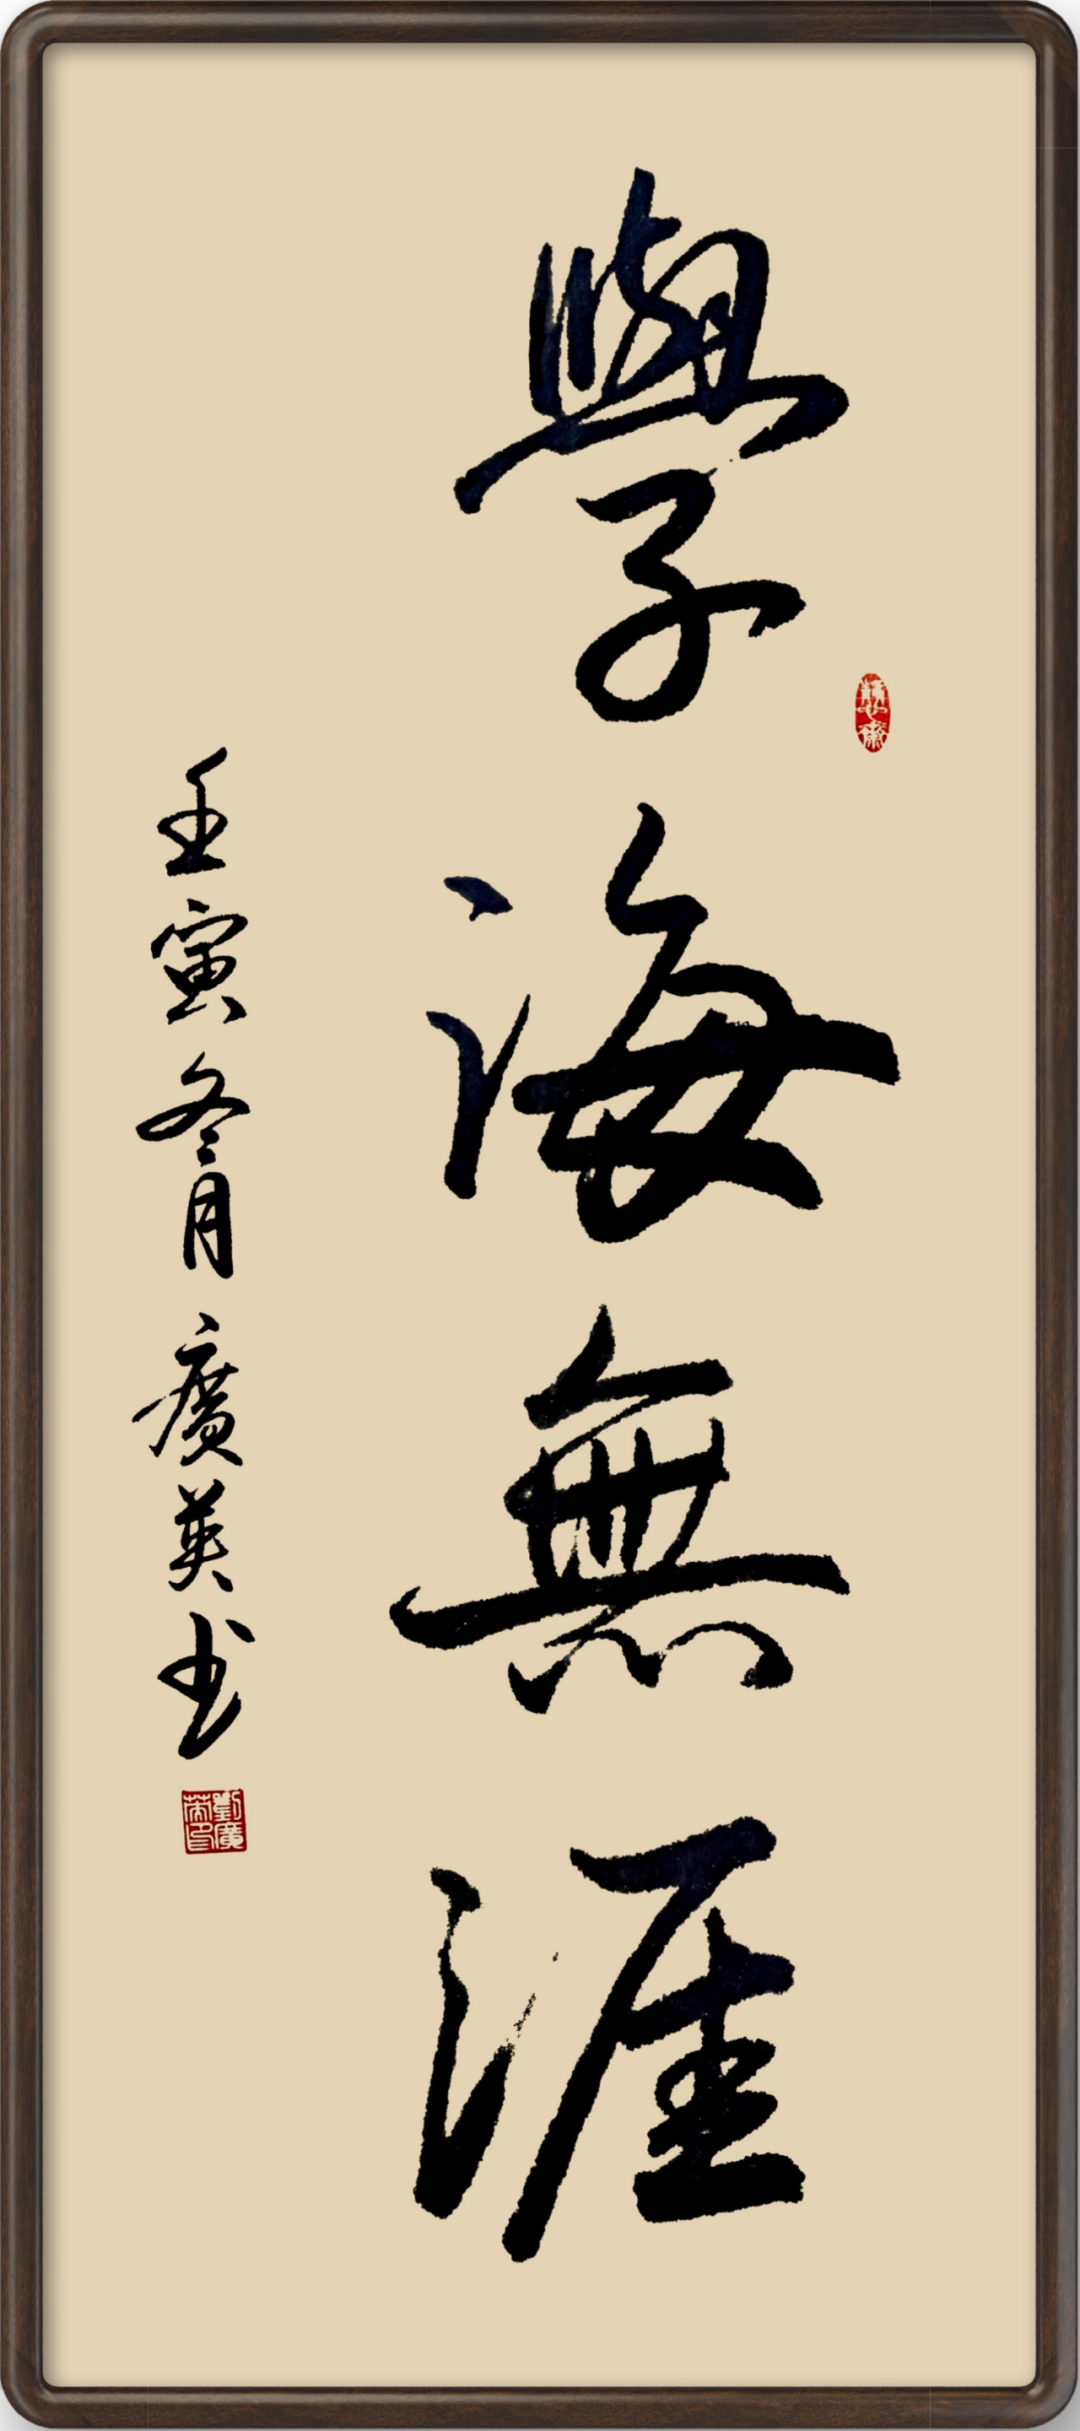 學海無涯
壬寅冬月廣英书
劉廣英印